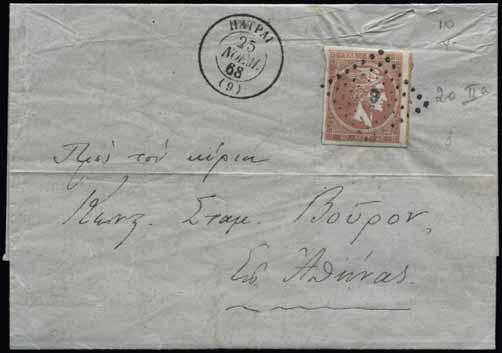 ΠΑΤΡΑΙ
25
ΝΟΕΜ.
68
(9)
9
10
20 IIa
Πρὸς τὸν κύριον
Κωνζ. Σταμ. Βοῦρον,
Εἰς Ἀθήνας.